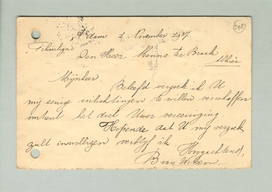 A'dam 1 November 1937
Den Heer Menno ter Braak
Mijnheer
Beleefd verzoek ik U
mij eenige inlichtingen te willen verschaffen
omtrent het doel Uwer vereeniging
Hopende dat U mij verzoek
zult inwilligen verblijf ik
Hoogachtend,